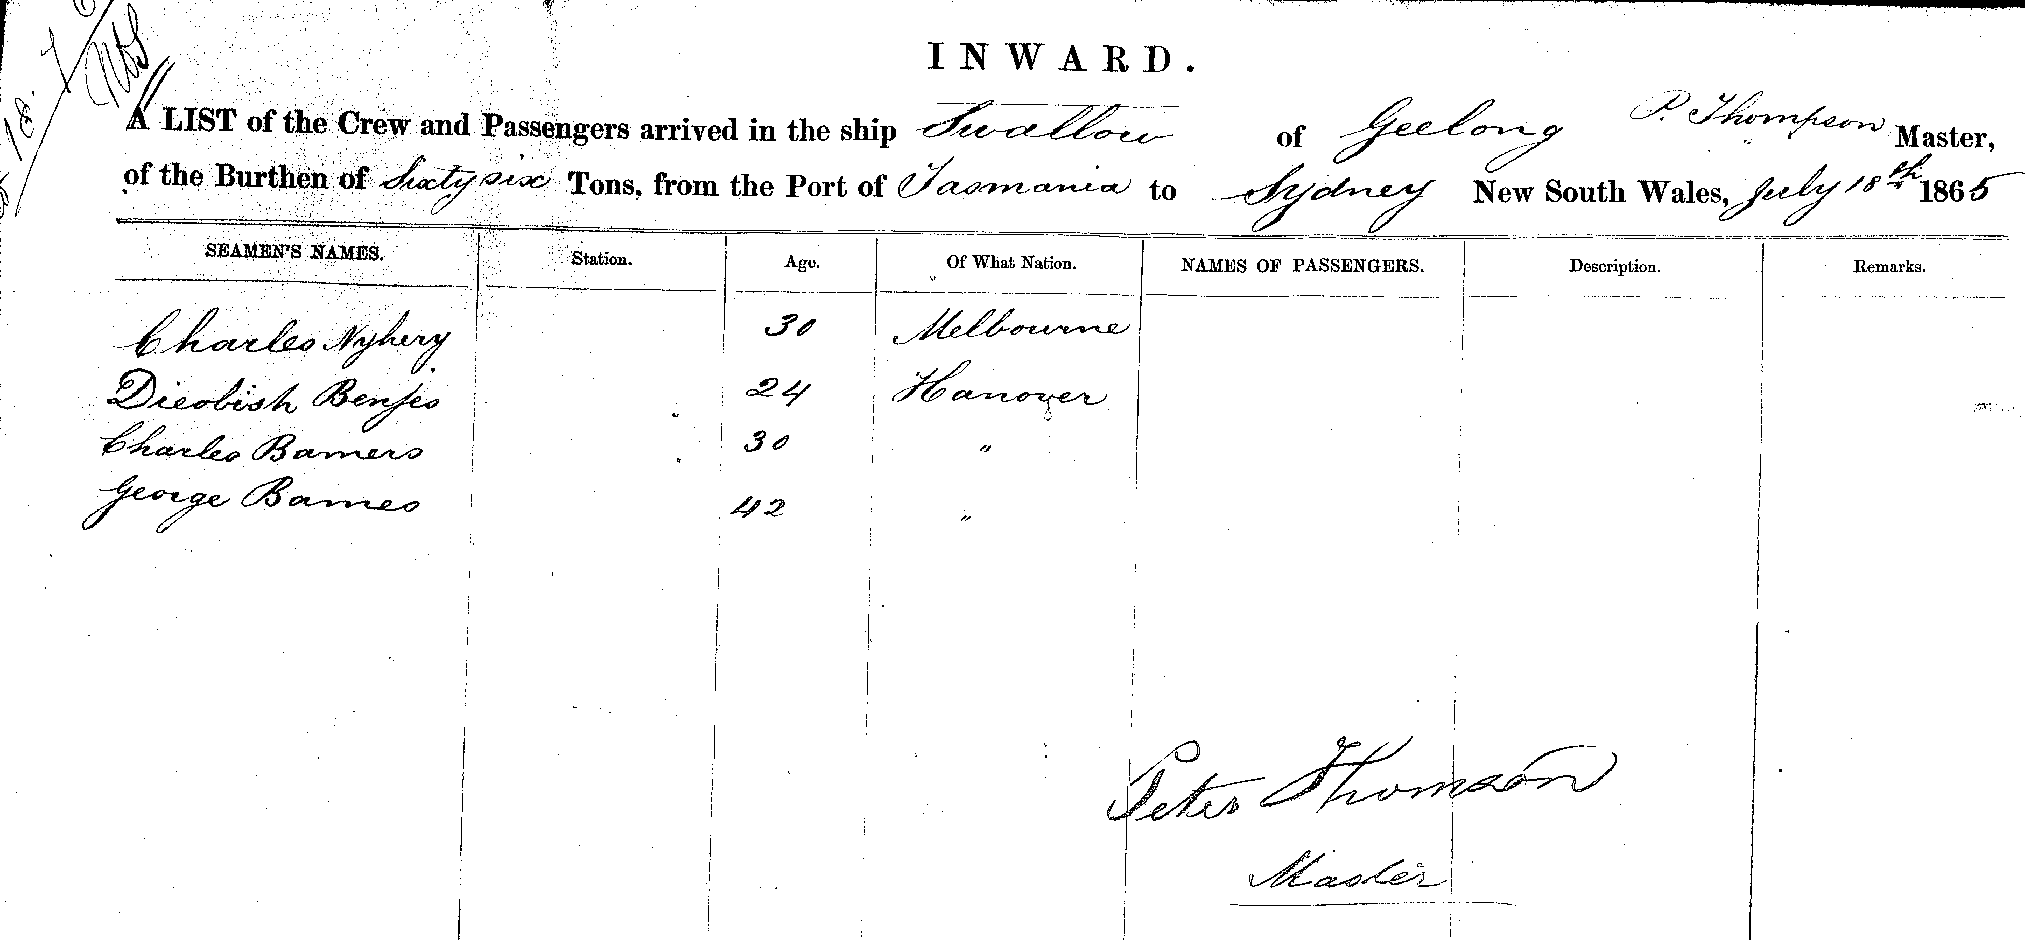 INWARD.
A LIST of the Crew and Passengers arrived in the ship Swallow of Geelong P. Thompson Master,
of the Burthen of Sixty six Tons, from the Port of Tasmania to Sydney New South Wales, July 18th 1865
SEAMEN'S NAMES. Station. Age. Of What Nation. NAMES OF PASSENGERS. Description. Remarks.
Charles Nyhery 30 Melbourne
Dieobish Benjes 24 Hanover
Charles Bamers 30 "
George Bames 42 "
Peter Thomson
Master